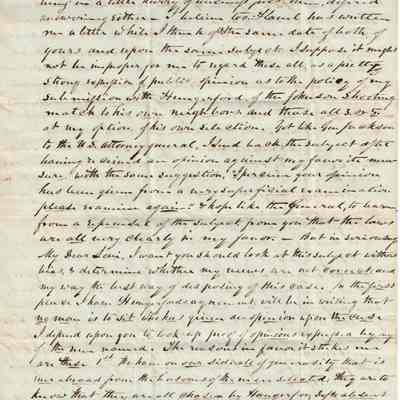 being in a little hurry
answering either - I believe too Flavel has written
me a letter while I think of the same date of both of
yours and upon the same subject. I suppose it might
not be improper for me to regard these all, as a pretty
strong expression of public opinion as to the policy of my
submission with Hungerford, of the Johnson Shooting
match to his own neighbors and those all 3 or 5
at my option, of his own selection. But like Gen Jackson
to the U.S. Attorney general, I send back the subject after
having received an opinion against my favorite mea-
sure, with the same suggestion, "I presume your opinion
has been given from a very superficial examination
please examine again". I hope like the General, to learn
from a reperusal of the subject from you that the laws
are all very clearly in my favor. - But in seriousness
My Dear Sir, I want you should look at this subject without
bias, & determine whether my views are not correct and
my way the best way of disposing of this case. In the first
place, I have Hungerfords agreement, will be in writing that
no man is to sit who has given an opinion upon the case
I depend upon you to look up proof of opinions expressed by any
of the men named. The reasons in favor it strikes me
are these 1st the han on our side all of generosity that is
mer abroad from the bosoms of the men selected, they are to
know that they are all chosen by Hungerford